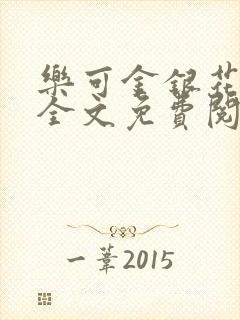 樂可金銀花
全文免費閱
一葦2015